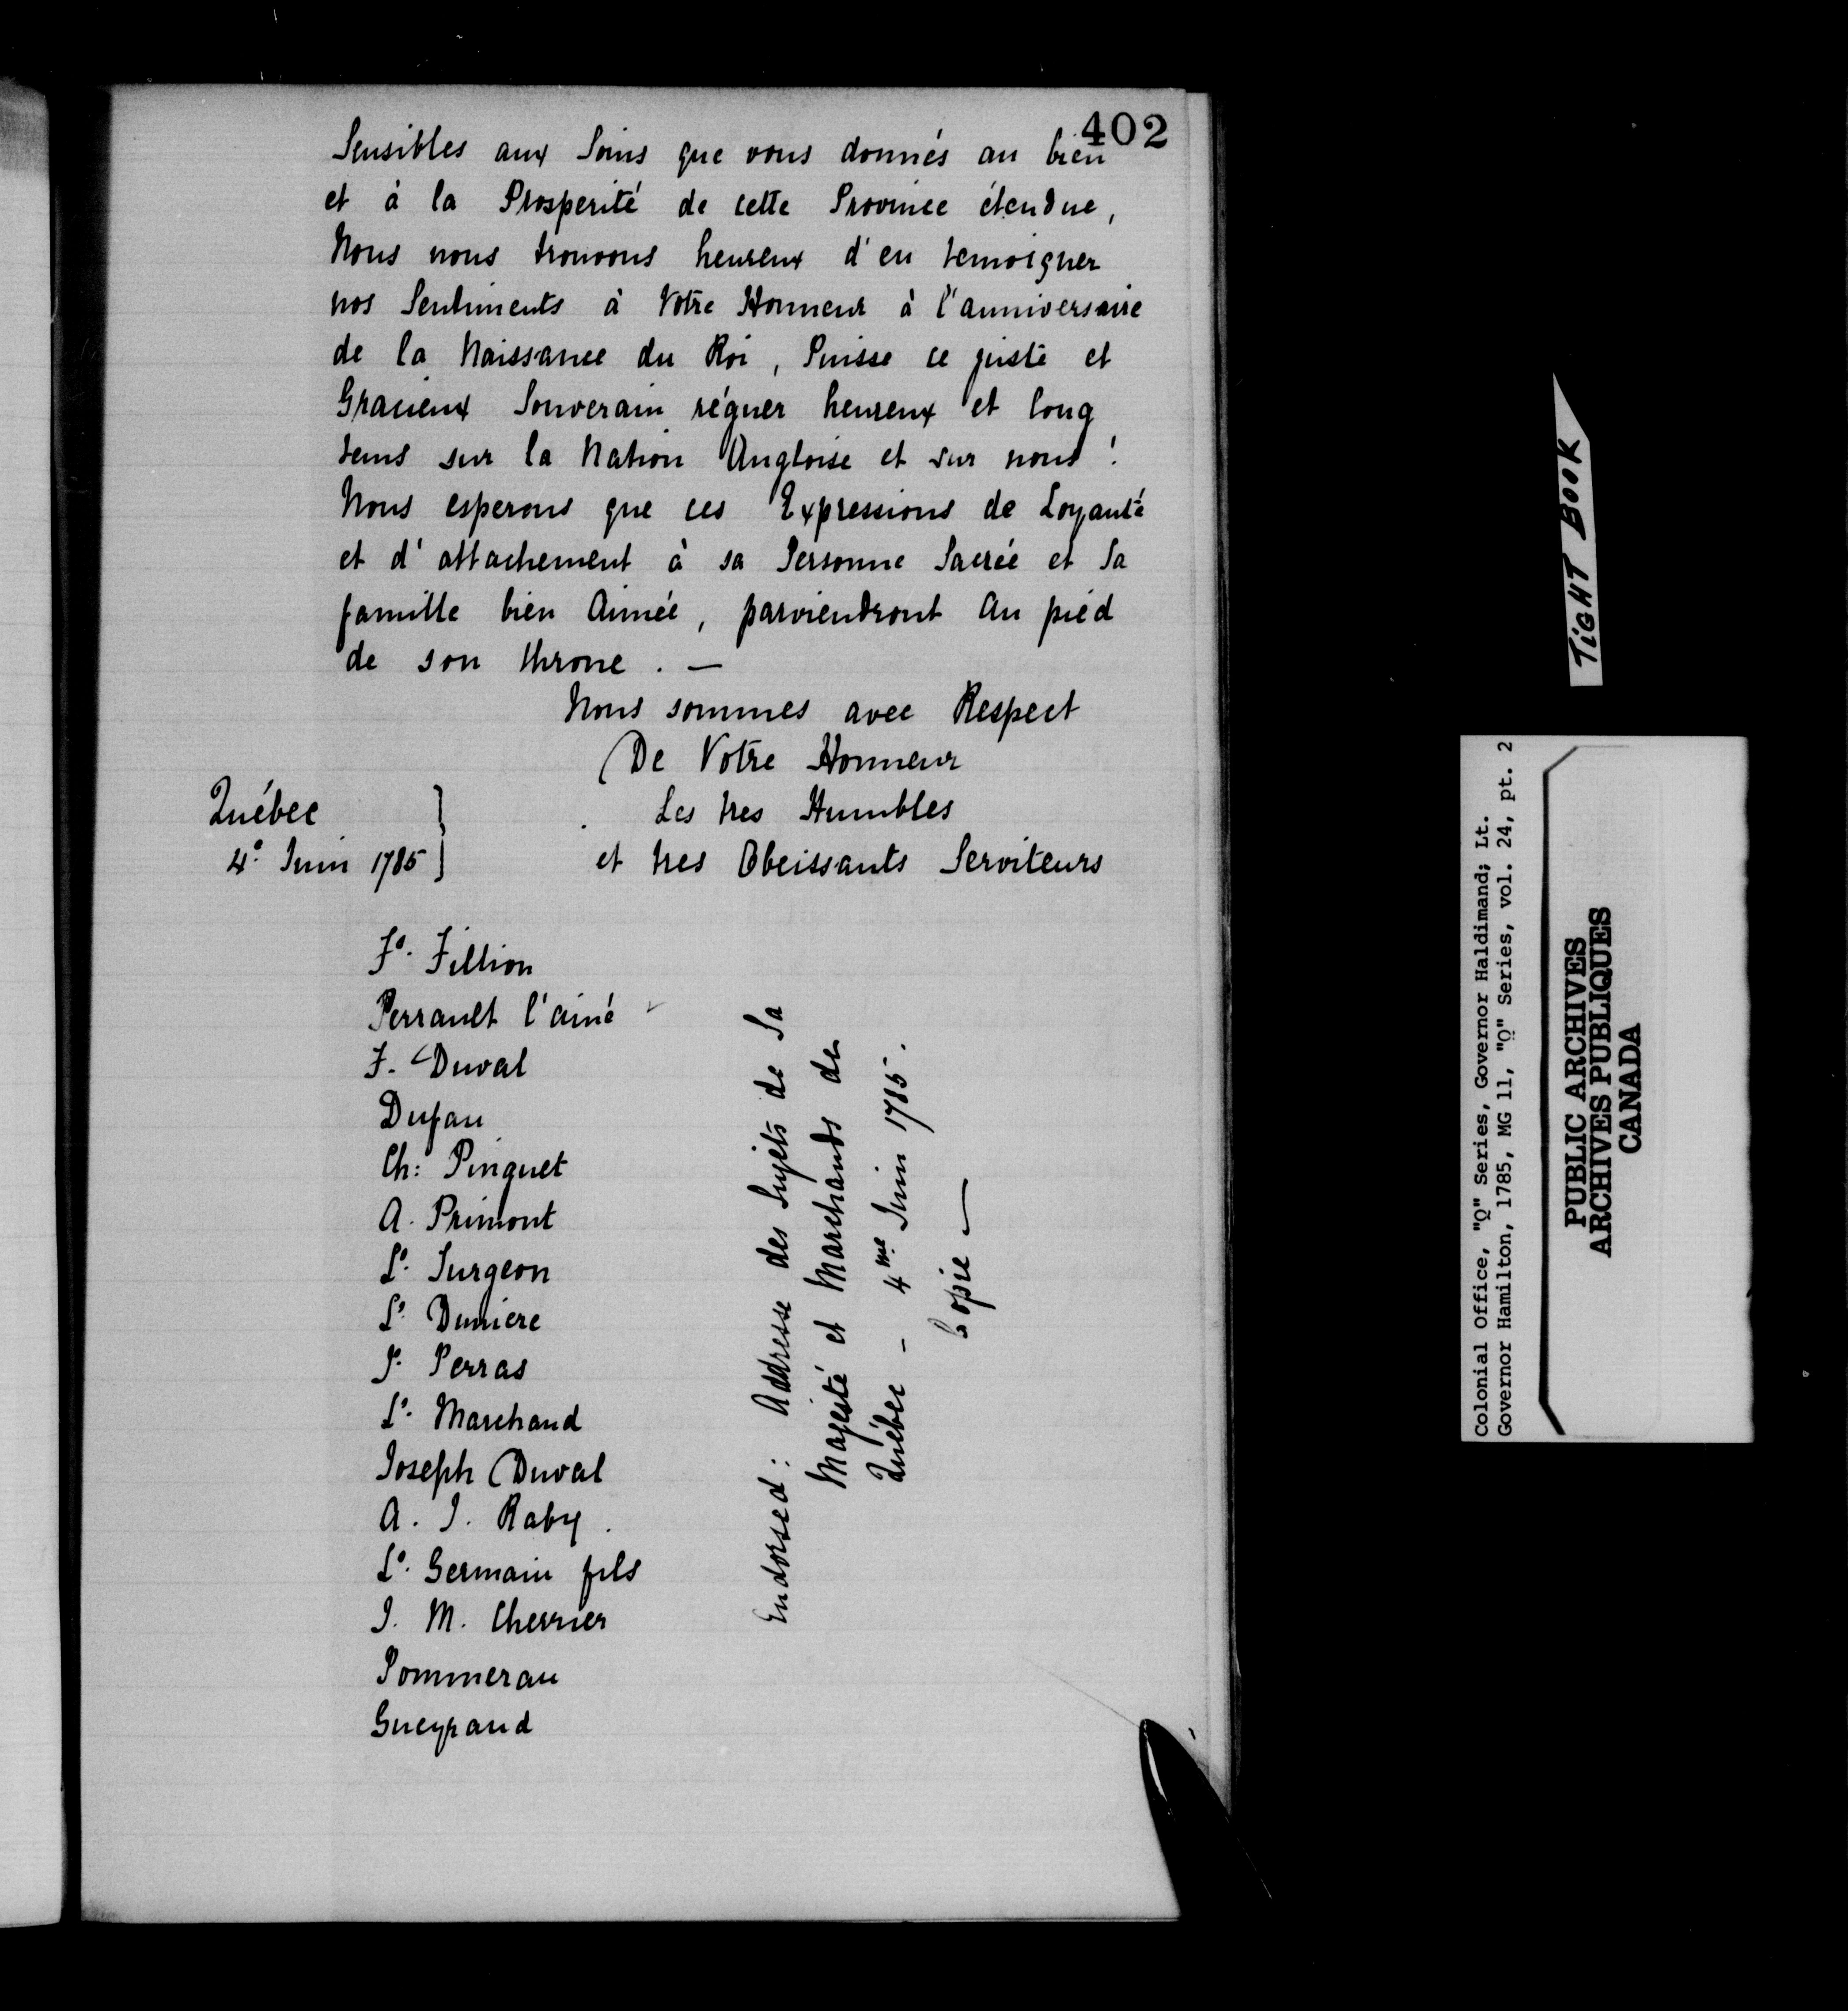 402
Sensibles aux Soins que vous donnés au bien
et à la Prosperité de cette Province étendue,
Nous nous trouvons heureux d'en temoigner
nos Sentiments à Votre Honneur à l'anniversaire
de la Naissance du Roi, Puisse ce juste et
Gracieux Souverain régner heureux et long
tems sur la Nation Angloise et sur nous!
Nous esperons que ces Expressions de Loyauté
et d'attachement à sa Personne Sacrée et Sa
famille bien Aimée, parviendront Au pied
de son throne. —
Nous sommes avec Respect
De Votre Honneur
Les tres Humbles
et tres Obeissants Serviteurs
Québec
4.º Juin 1785
Fs. Fillion
Perrault l'ainé
F. Duval
Dufau
Ch: Pinguet
A. Primont
Ls. Turgeon
Ls. Duniere
P. Perras
Ls. Marchand
Joseph Duval
A. J. Raby.
Ls. Germain fils
J. M. Cherrier
Pommerau
Gueyraud
Endorsed: Addresse des Sujets de Sa
Majesté et Marchands de
Québec - 4me Juin 1785.
Copie —
TIGHT BOOK
Colonial Office, "Q" Series, Governor Haldimand; Lt.
Governor Hamilton, 1785, MG 11, "Q" Series, vol. 24, pt. 2
PUBLIC ARCHIVES
ARCHIVES PUBLIQUES
CANADA